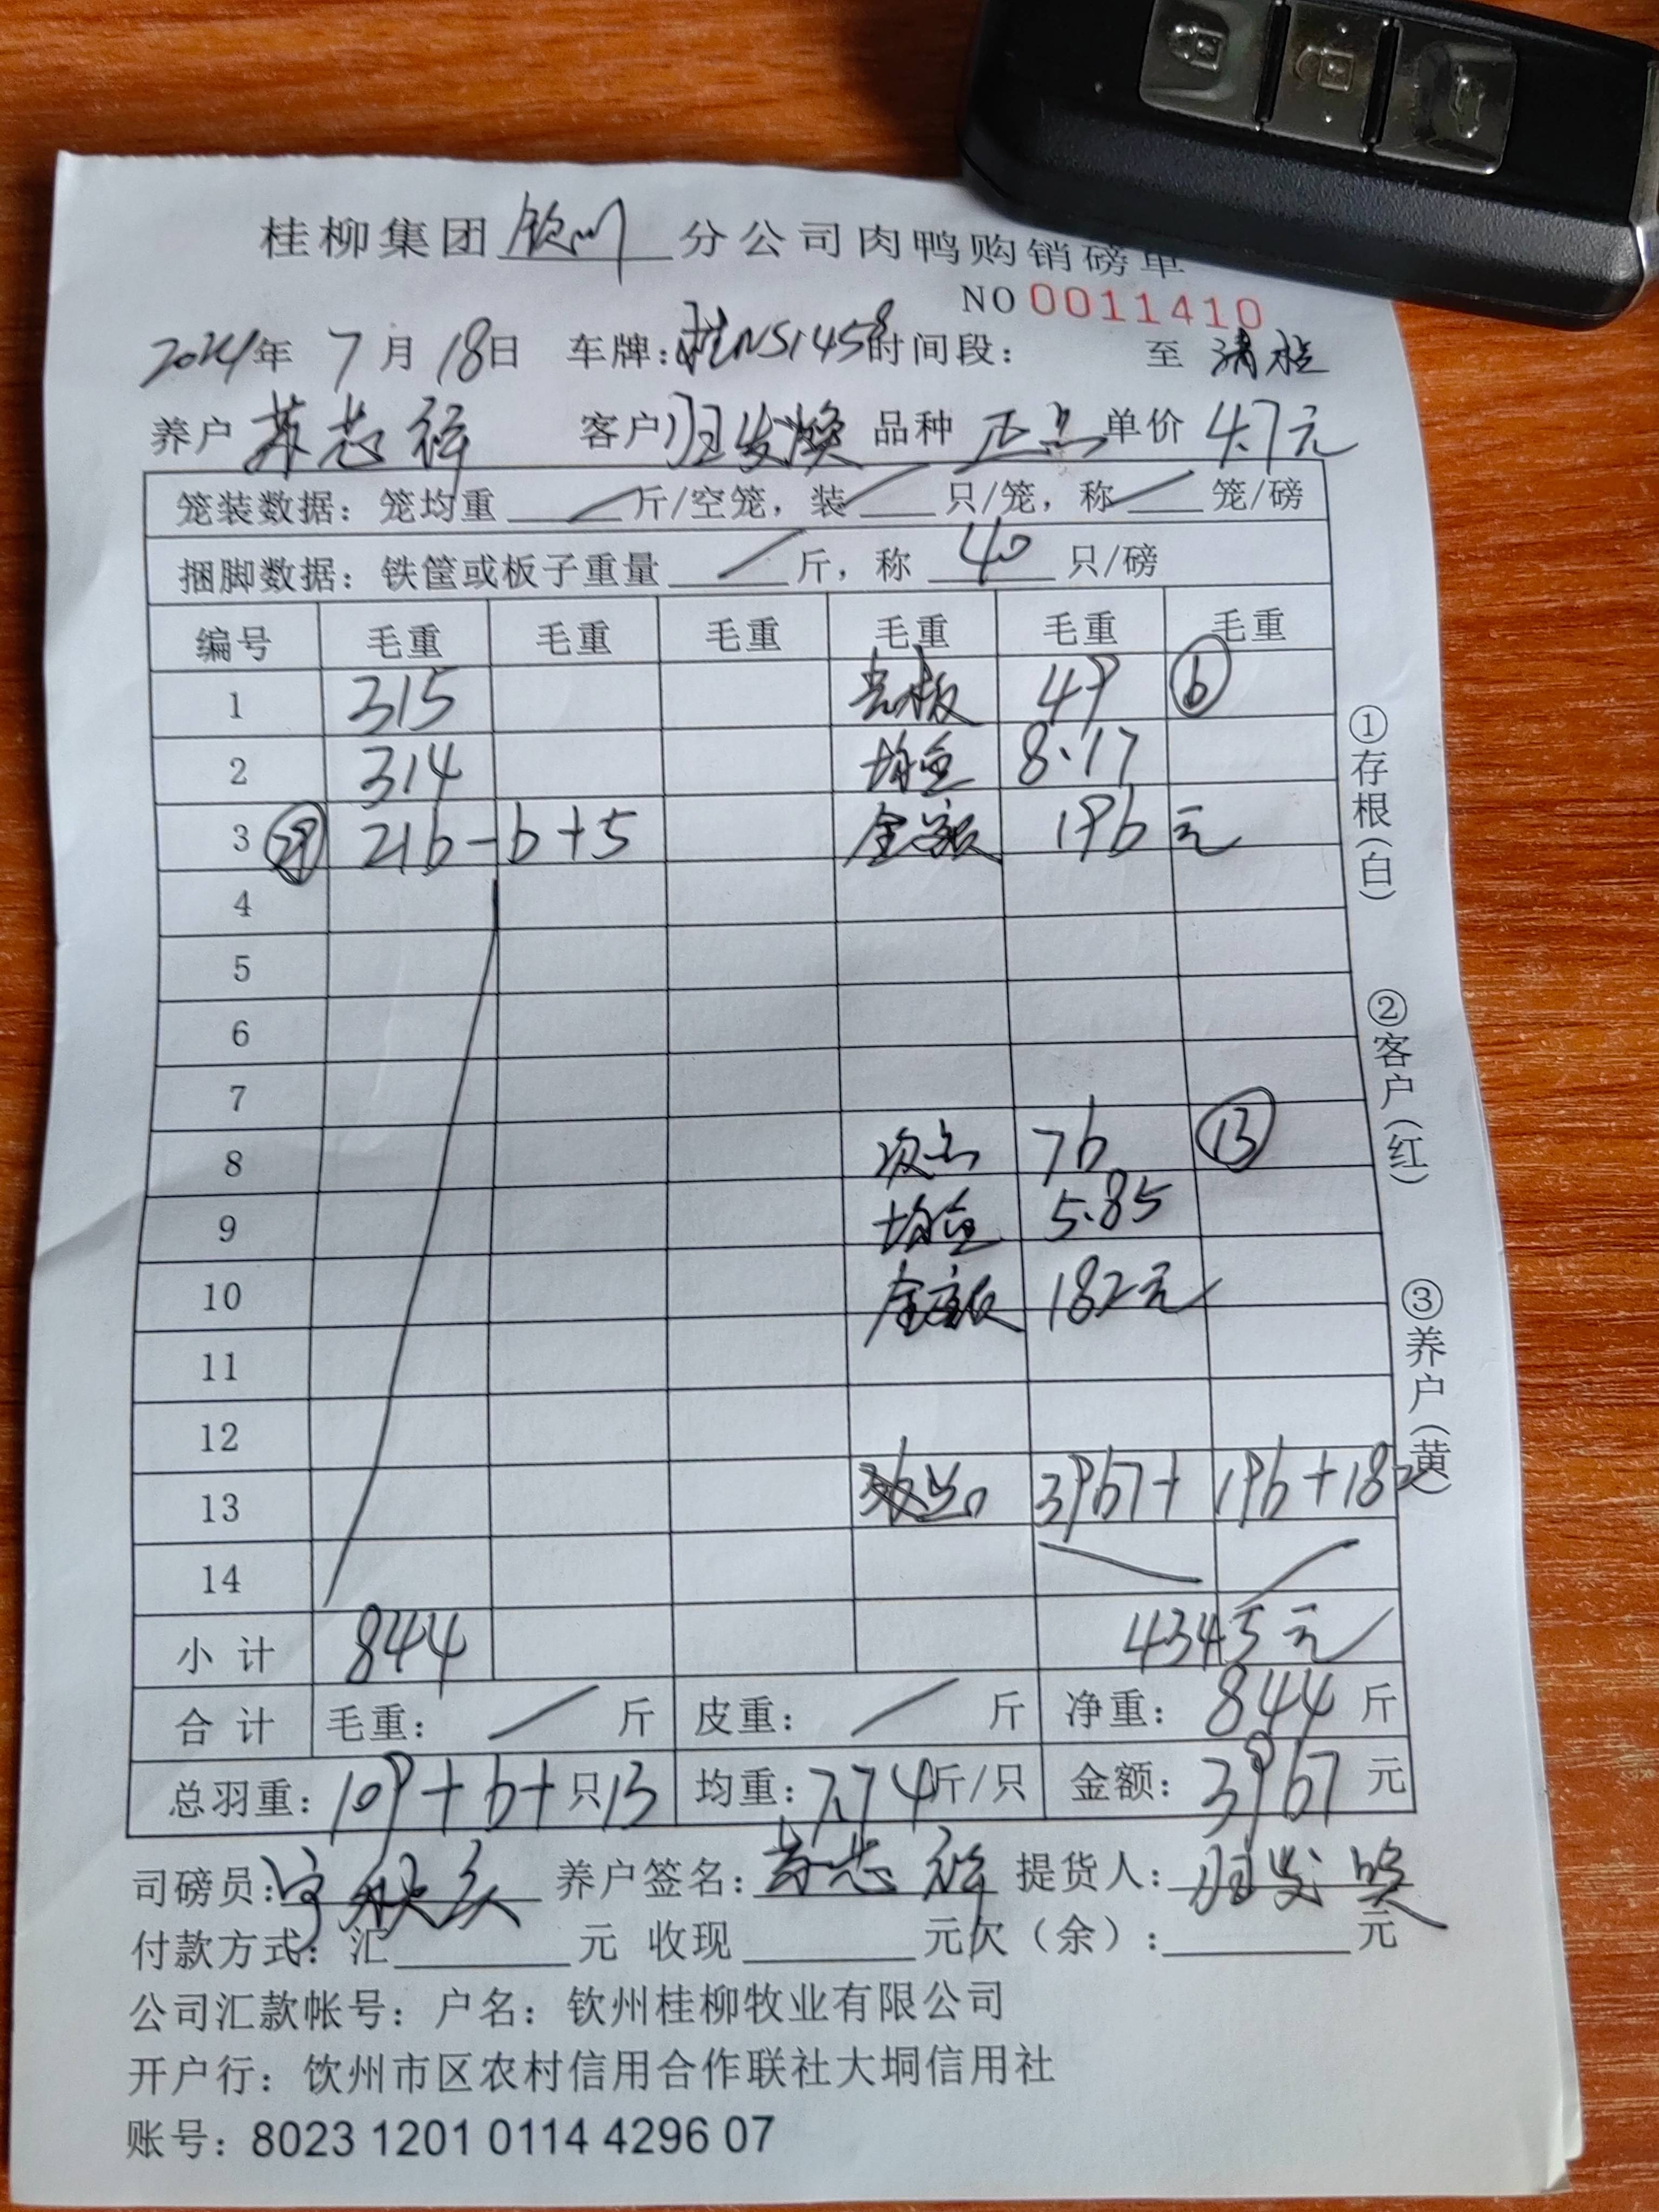 桂柳集团 钦州 分公司肉鸭购销磅单
NO 0011410
2024年 7月 18日 车牌:桂NS1458 时间段: 至 清栏
养户 苏芯祥 客户 发焕 品种 正品 单价 4.7元
笼装数据: 笼均重 / 斤/空笼, 装 / 只/笼, 称 / 笼/磅
捆脚数据: 铁筐或板子重量 / 斤, 称 40 只/磅
编号 毛重 毛重 毛重 毛重 毛重 毛重
1 315 光板 49 ⑥
2 314 均重 8.17
3 ㉙ 216-6+5 金额 196元
4
5
6
7
8 次品 76 ⑬
9 均重 5.85
10 金额 182元
11
12
13 3967+196+182
14
小计 844 4345元
合计 毛重: / 斤 皮重: / 斤 净重: 844 斤
总羽重: 109+6+只13 均重: 7.74斤/只 金额: 3967 元
司磅员: 养户签名: 苏芯祥 提货人: 发
付款方式: 汇 元 收现 元欠(余): 元
公司汇款帐号: 户名: 钦州桂柳牧业有限公司
开户行: 钦州市区农村信用合作联社大垌信用社
账号: 8023 1201 0114 4296 07
①存根(白)
②客户(红)
③养户(黄)